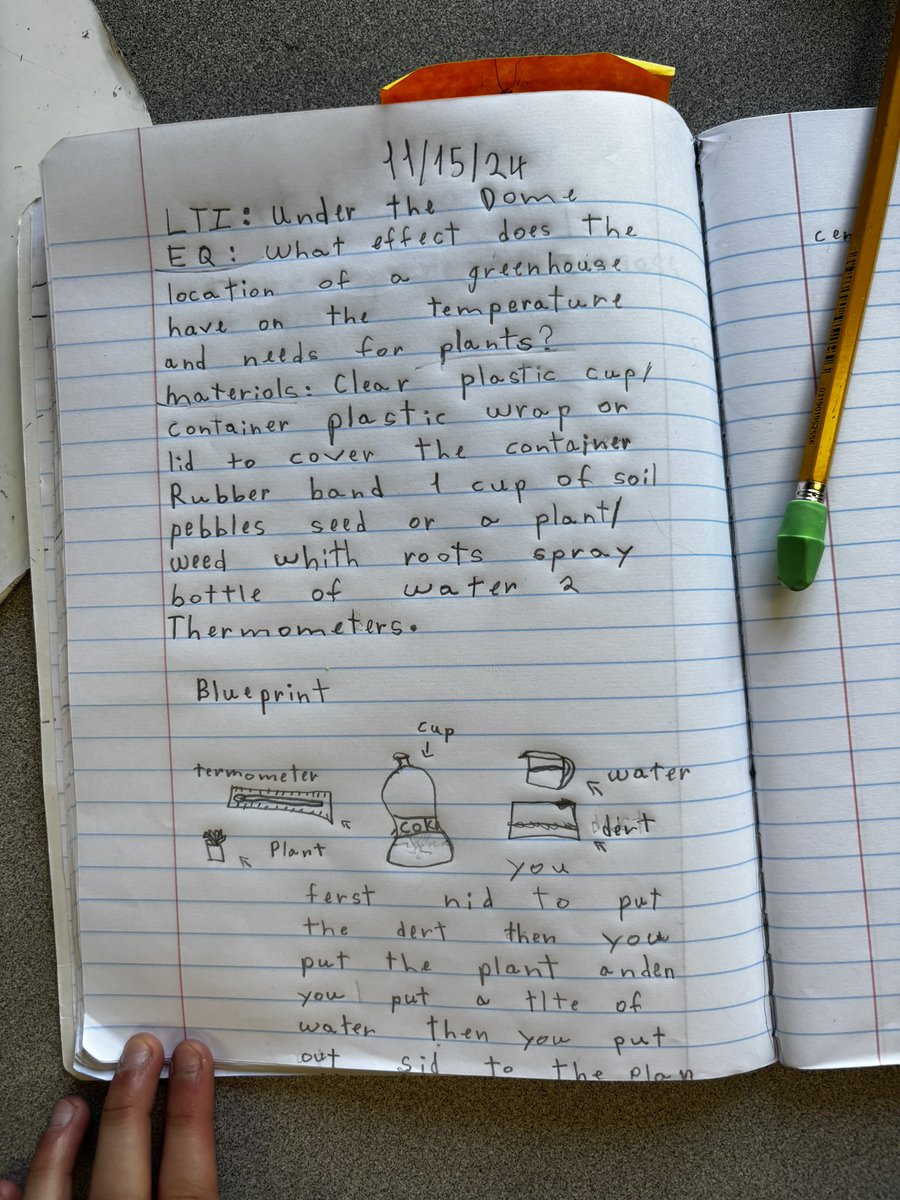 11/15/24
LTI: Under the Dome
EQ: What effect does the
location of a greenhouse
have on the temperature
and needs for plants?
materiols: Clear plastic cup/
container plastic wrap or
lid to cover the container
Rubber band 1 cup of soil
pebbles seed or a plant/
weed whith roots spray
bottle of water 2
Thermometers.
Blueprint
cup
termometer
water
COKE
dert
Plant
you
ferst nid to put
the dert then you
put the plant anden
you put a tlte of
water then you put
out sid to the plan
cen
031901952556